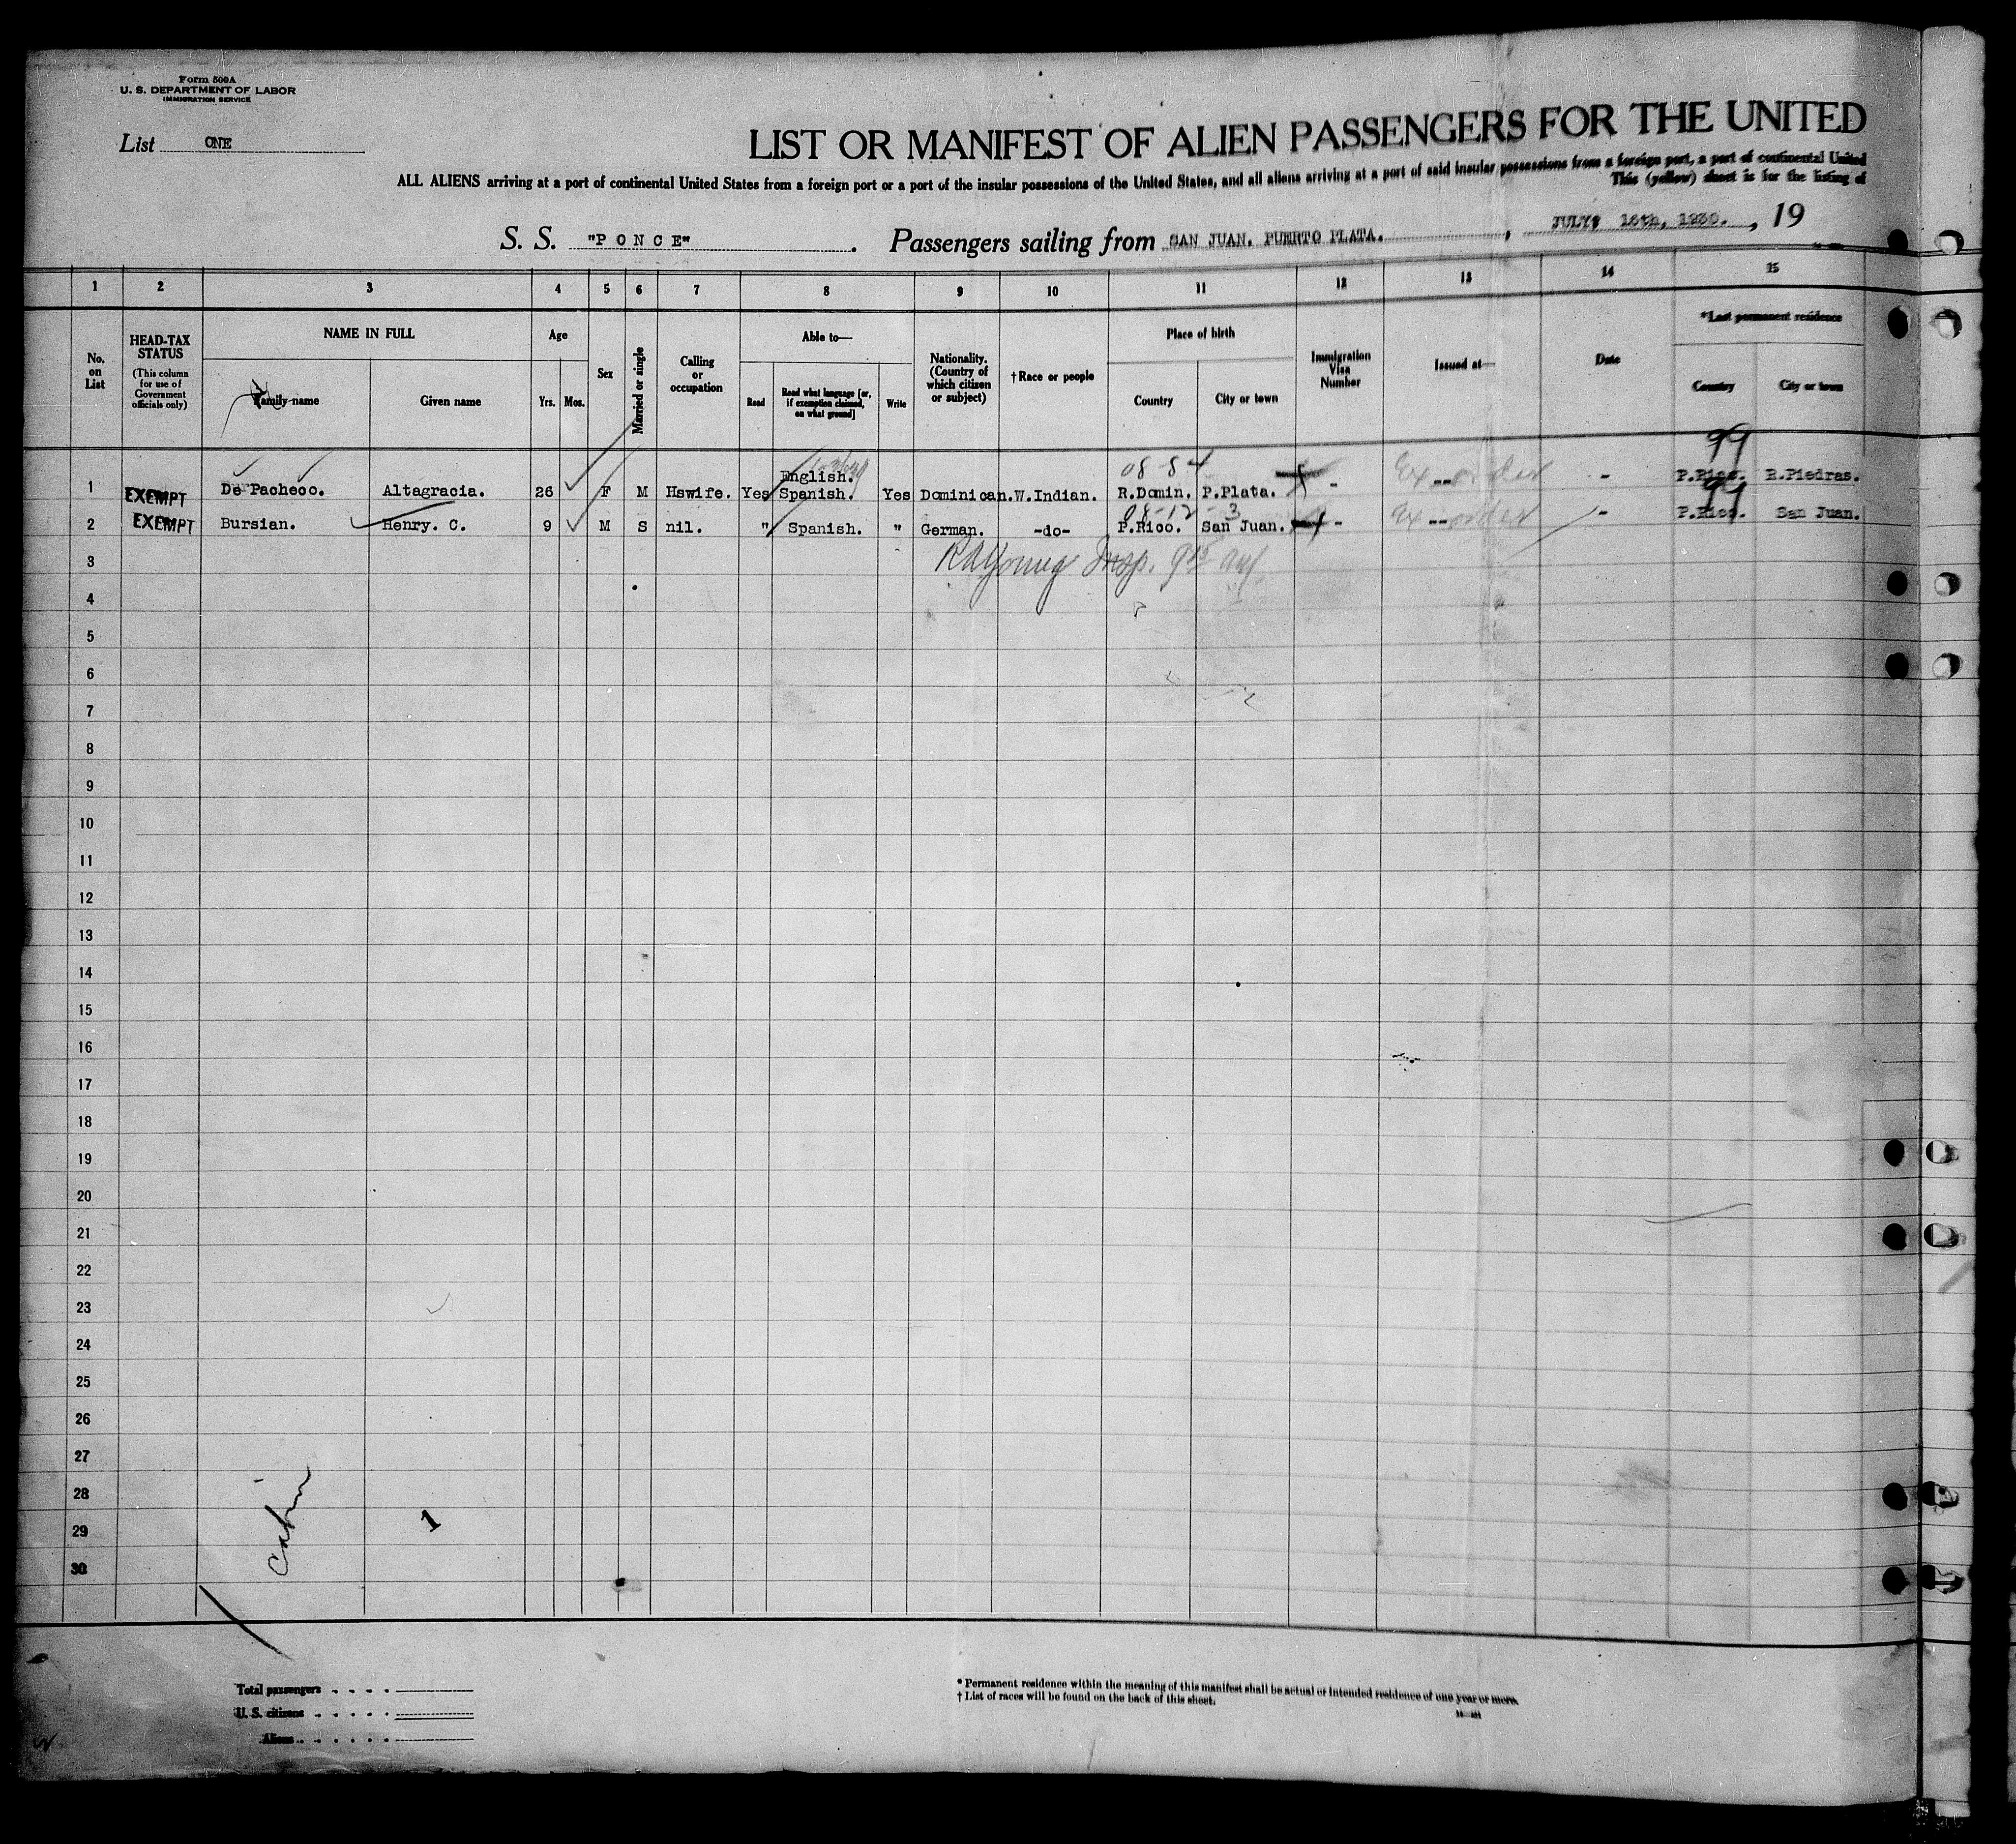 Form 500A
U. S. DEPARTMENT OF LABOR
IMMIGRATION SERVICE
List ONE
LIST OR MANIFEST OF ALIEN PASSENGERS FOR THE UNITED
ALL ALIENS arriving at a port of continental United States from a foreign port or a port of the insular possessions of the United States, and all aliens arriving at a port of said insular possessions from a foreign port, a port of continental United
This (yellow) sheet is for the listing of
S. S. "PONCE" . Passengers sailing from SAN JUAN. PUERTO PLATA. , JULY 16th, 1930. , 19
1 2 3 4 5 6 7 8 9 10 11 12 13 14 15
No. on List
HEAD-TAX STATUS
(This column for use of Government officials only)
NAME IN FULL
Family name
Given name
Age
Yrs. Mos.
Sex
Married or single
Calling or occupation
Able to—
Read
Read what language [or, if exemption claimed, on what ground]
Write
Nationality. (Country of which citizen or subject)
† Race or people
Place of birth
Country
City or town
Immigration Visa Number
Issued at—
Date
*Last permanent residence
Country
City or town
99
08-84
1 EXEMPT De Pacheco. Altagracia. 26 F M Hswife. Yes English. Spanish. Yes Dominican. W.Indian. R.Domin. P.Plata. - Ex -- order - P.Rico. R.Piedras.
99
08-12-3
2 EXEMPT Bursian. Henry. C. 9 M S nil. " Spanish. " German. -do- P.Rico. San Juan. - Ex -- order - P.Rico. San Juan.
3 RA Young Insp.
4
5
6
7
8
9
10
11
12
13
14
15
16
17
18
19
20
21
22
23
24
25
26
27
28
29
30
Cabin
1
Total passengers
U. S. citizens
Aliens
* Permanent residence within the meaning of this manifest shall be actual or intended residence of one year or more.
† List of races will be found on the back of this sheet.